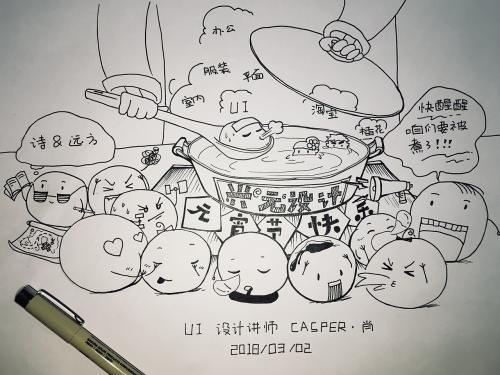 办公
服装
平面
室内
UI
淘宝
插花
快醒醒
咱们要被
煮了!!!
诗 & 远方
元宵节快乐
UI 设计讲师 CASPER·尚
2018/03/02